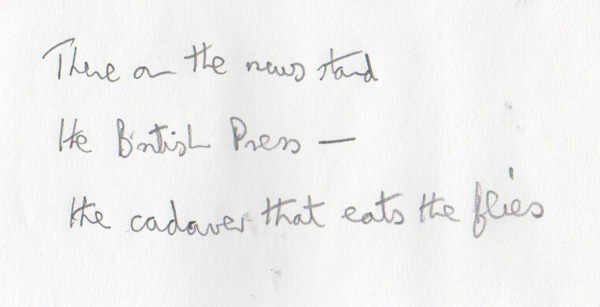 There on the news stand
the British Press —
the cadaver that eats the flies